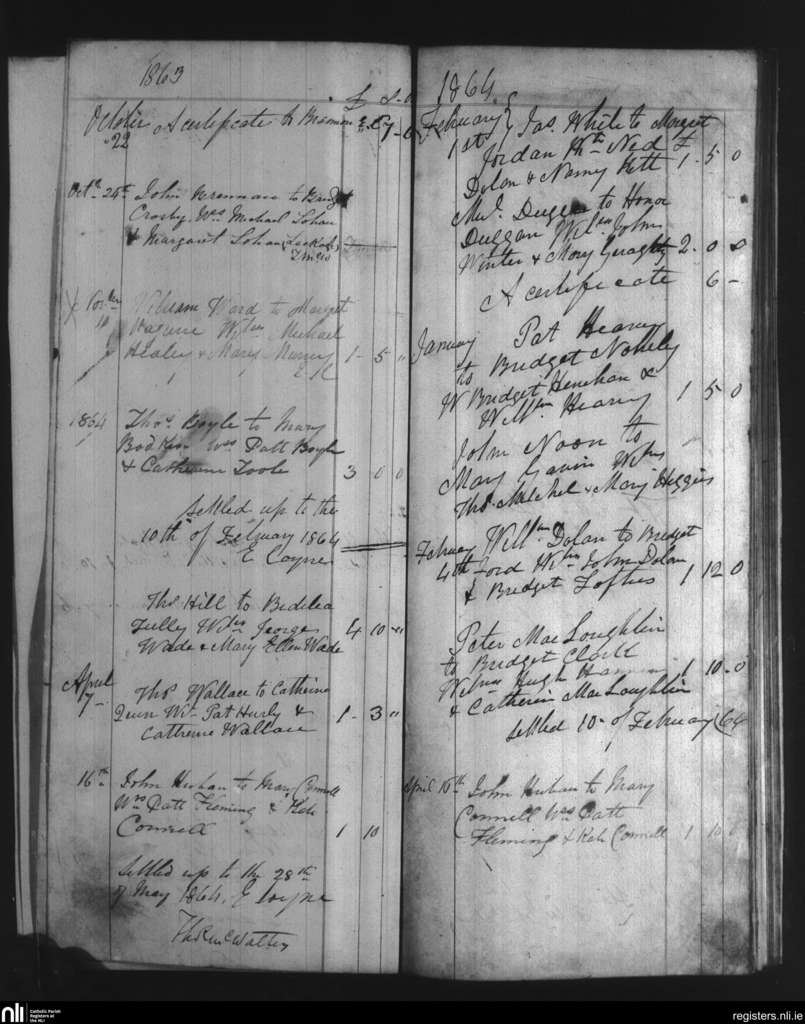 1863
£ S D
October A certificate to Brennan E. C 7 - 6
22
Octr 24th John Brennan to Bridget
Crosby Wss Michael Lohan
& Margaret Lohan
William Ward to Margret
Wtn Michael
Healey & Mary 1 - 5 "
10
E C
1864 Thos Boyle to Mary
Bodkin Wss Patt Boyle
& Catherine Toole 3 0 0
Settled up to the
10th of February 1864
E Coyne
Thos Hill to Bedelia
Tully Wtns George
Wade & Mary Ellen Wade 4 10 "
April
7 Thos Wallace to Catherine
Quinn Wtn Pat Hurly &
Catherine Wallace 1 - 3 "
16th John Huban to Mary Connell
Wss Patt Fleming & Kate
Connell 1 10
Settled up to the 28th
of May 1864. E Coyne
1864
February Jas. White to Margret
1st Jordan Ned £
Dolan & Nancy 1 - 5 0
Ml. Duggan to Honor
Duggan Wtn John
Winter & Mary Geraghty 2 - 0 0
A certificate 6 -
January Pat Heavy
to Bridget
W Bridget Henehan &
Willm Heavy 1 5 0
John Noon to
Mary Gavin Wtns
Thos Mitchel & Mary Higgins
February Willm Dolan to Bridget
4th Ford Wtns John Dolan
& Bridget Loftus 1 12 0
Peter Mac Loughlin
to Bridget
Wtns Hugh 1 10 - 0
& Catherin Mac Loughlin
Settled 10th of February 64
April 16th John Huban to Mary
Connell Wss Patt
Fleming & Kate Connell 1 10 0
nli Catholic Parish
Registers at
the NLI
registers.nli.ie